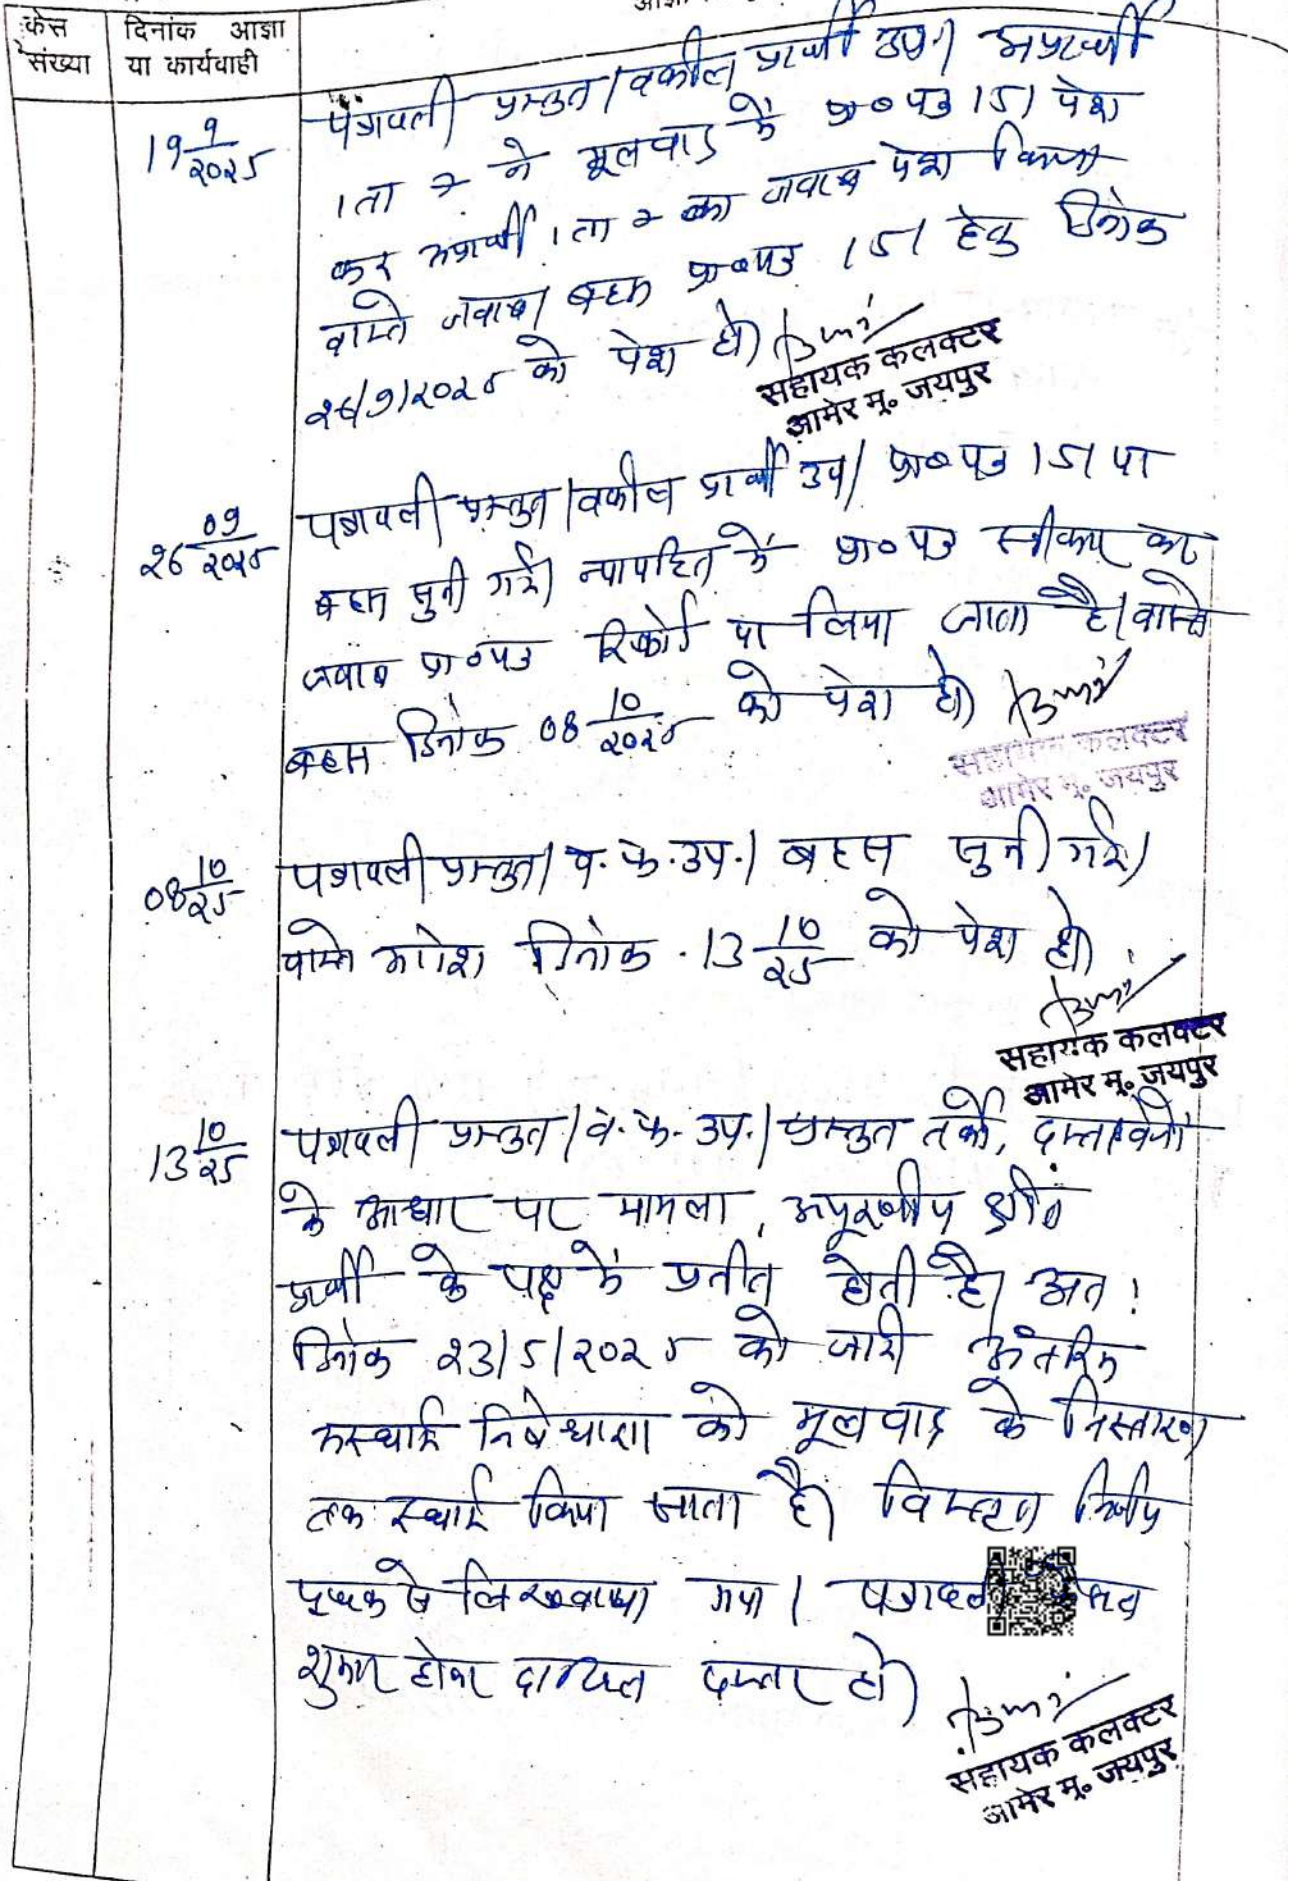 केस
संख्या
दिनांक आज्ञा
या कार्यवाही
19 9/2025
पत्रावली प्रस्तुत। वकील प्रार्थी उप.। अप्रार्थी
1 ता 2 ने मूलवाद में प्रा०पत्र 151 पेश
कर अप्रार्थी 1 ता 2 का जवाब पेश किया
वास्ते जवाब/बहस प्रा०पत्र 151 हेतु दिनांक
26/9/2025 को पेश हो।
सहायक कलक्टर
आमेर मु० जयपुर
26 09/2025
पत्रावली प्रस्तुत। वकील प्रार्थी उप। प्रा०पत्र 151 पर
बहस सुनी गई। न्यायहित में प्रा०पत्र स्वीकार कर
जवाब प्रा०पत्र रिकॉर्ड पर लिया जाता है। वास्ते
बहस दिनांक 08 10/2025 को पेश हो।
सहायक कलक्टर
आमेर मु० जयपुर
08 10/25
पत्रावली प्रस्तुत। व.फ.उप.। बहस सुनी गई।
वास्ते आदेश दिनांक 13 10/25 को पेश हो।
सहायक कलक्टर
आमेर मु० जयपुर
13 10/25
पत्रावली प्रस्तुत। व.फ.उप.। प्रस्तुत तर्को, दस्तावेजो
के आधार पर मामला, अपूरणीय क्षति
प्रार्थी के पक्ष में प्रतीत होती है। अतः
दिनांक 23/5/2025 को जारी अंतरिम
अस्थाई निषेधाज्ञा को मूलवाद के निस्तारण
तक स्थाई किया जाता है। विस्तृत निर्णय
पृथक से लिखवाया गया। पत्रावली फैसल
शुमार होकर दाखिल दफ्तर हो।
सहायक कलक्टर
आमेर मु० जयपुर